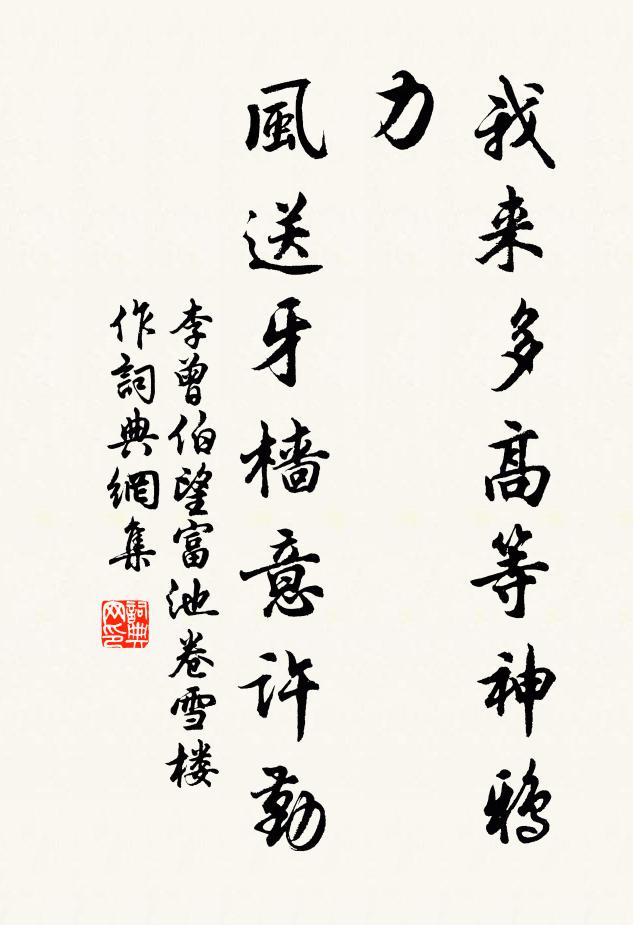 我来多高等神鴉
力
風送牙檣意許勤
李曾伯望富池卷雪楼
作詞典網集
詞典
网印